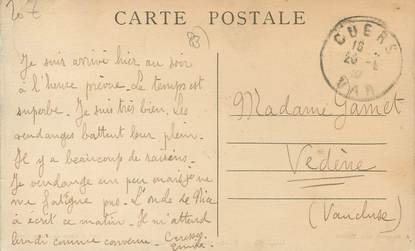 CARTE POSTALE
Je suis arrivé hier au soir
à l'heure prévue. Le temps est
superbe. Je suis très bien. Les
vendanges battent leur plein.
Il y a beaucoup de raisins.
Je vendange un peu mais je ne
me fatigue pas. L'oncle de Nice
a écrit ce matin. Il m'attend
lundi comme convenu.
CUERS
VAR
Madame
Vedène
(Vaucluse)